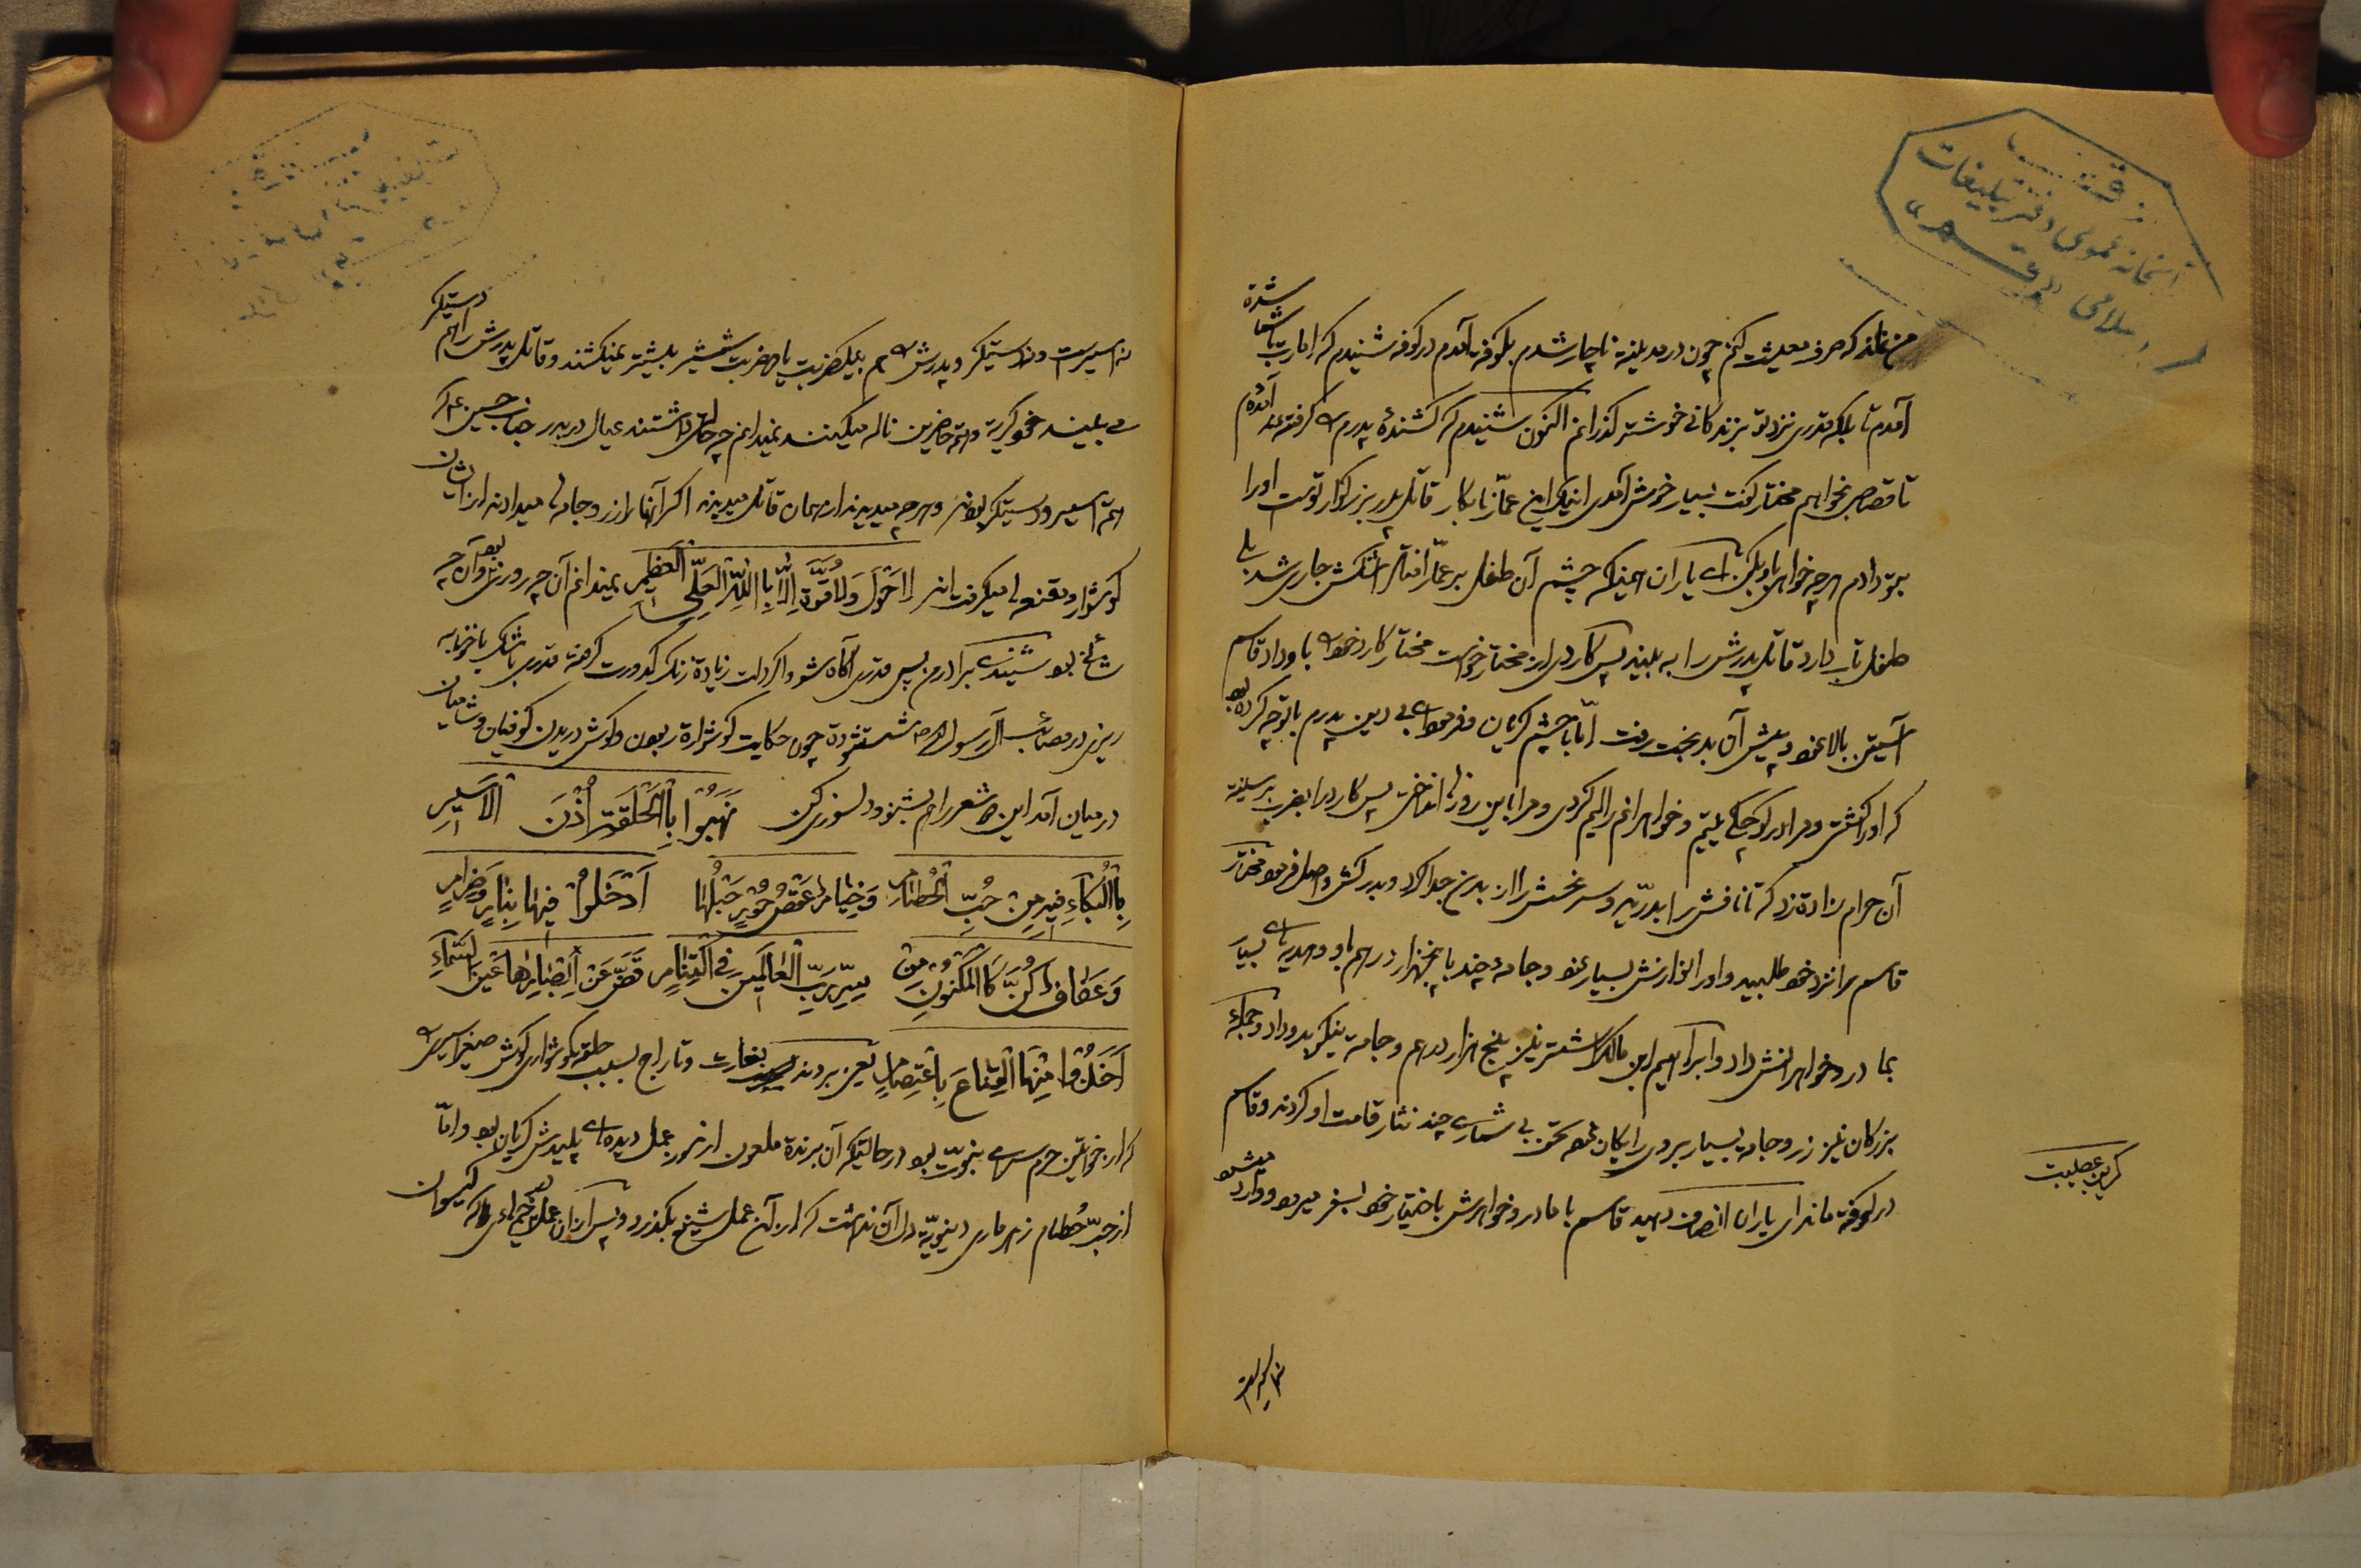 من نماند که صرف معیشت کنم چون در مدینه ناچار شدم بکوفه آمدم در کوفه شنیدم که امارت با شما شده
آمدم تا بلکه قدری نزد تو بزندکانی خوشتر کذرانم اکنون شنیدم که کشندهٔ پدرم را کرفته‌اند آمده‌ام
تا قصاص بخواهم مختار کفت بسیار خوش آمدی اینک این عمّار نابکار قاتل پدر بزرکوار توست او را
بتو دادم هرچه خواهی با او بکن ای یاران همینکه چشم آن طفل بر عمّار افتاد اشکش جاری شد بلی
طفل تاب دارد قاتل پدرش را به بیند پس کاردی از مختار خواست مختار کارد خود را باو داد قاسم
آستین بالا نمود و پیش آن بدبخت رفت امّا با چشم کریان و فرمود ای بی دین پدرم با تو چه کرده بود
که او را کشتی و مرا در کوچکی یتیم و خواهرانم را الیم کردی و مرا باین روز انداختی پس کارد را بضرب بر سینه
آن حرام زاده زد که تا نافش را بدرّید و سر نحسش را از بدن جدا کرد و بدرکش واصل فرمود مختار
قاسم را نزد خود طلبید و او را نوازش بسیار نمود و جامهٔ چند با پنجهزار درهم باو و هدیهای بسیار
بمادر و خواهرانش داد و ابراهیم ابن مالک اشتر نیز پنج هزار درهم و جامه نیکی بدو داد و جمله
بزرکان نیز زر و جامه بسیار بر وی رایکان نمود تحف بی شماری چند نثار قامت او کردند و قاسم
در کوفه ماند ای یاران انصاف دهید قاسم با مادر و خواهرش باختیار خود بسفر میرود و وارد میشود
کریز بمصیبت
نه اسیر است
نه اسیر است و نه دستیکر و پدرش را هم بیک ضربت یا دو ضربت شمشیر بیشتر نمیکشند و قاتل پدرش را هم دستیکر
می بیند خود کریه و همه حاضرین ناله میکنند نمیدانم چه حالی داشتند عیال در بدر جناب حسین ع که
همه اسیر و دستیکر بودند و هرچه میدیدند از همان قاتل میدیدند اکر آنها را زر و جامه‌ها میدادند از ایشان
کوشواره و مقنعه‌ها میکرفتند لا حَوْلَ وَلا قُوَّةَ اِلّا بِاللّهِ العَلِیِّ العَظیمِ نمیدانم آن چه روزی بود و آن چه
شامی بود شنیدی برادر من پس قدری آکاه شو و اکر دلت زیاده زنک کدورت کرفته قدری باشک یا خونابه
ریزی در مصائب آل رسول الله ص شستشو ده چون حکایت کوشواره ربودن و کوش دریدن کوفیان و شامیان
در میان آمد این شعر را هم بشنو و دلسوزی کن نَهَبُوا بِالْحَلَقَةِ اُذْنَ الْاَسیرِ
بِالْبُکآءِ فیهِ مِنْ حُبِّ الْحُطامِ وَخِیامٍ عَقْصُ حُورٍ حَبْلُها اَدْخَلُوا فیها بِنارٍ وَضِرامٍ
وَعَفافٍ کُنَّ کَالْمَکْنُونِ مِنْ سِرِّ رَبِّ الْعالَمینَ فِی الْقِیامِ غَضَّ عَنْ اَبْصارِها عَیْنَ السَّمآءِ
اَخَذُوا مِنْهَا الْقِناعَ بِاعْتِصامٍ یعنی بردند بغارت و تاراج بسبب حلقه کوشوارهٔ کوش صغیر اسیری
که از خواتین حرم سرای نبوّت بود در حالتیکه آن برنده ملعون از زور عمل دیده‌های پلیدش کریان بود و امّا
از حبّ حُطام زهرماری دنیویّه دل آن نداشت که از آن عمل شنیع بکذرد و پس از آن عمل خیمهٔ که کیسوان